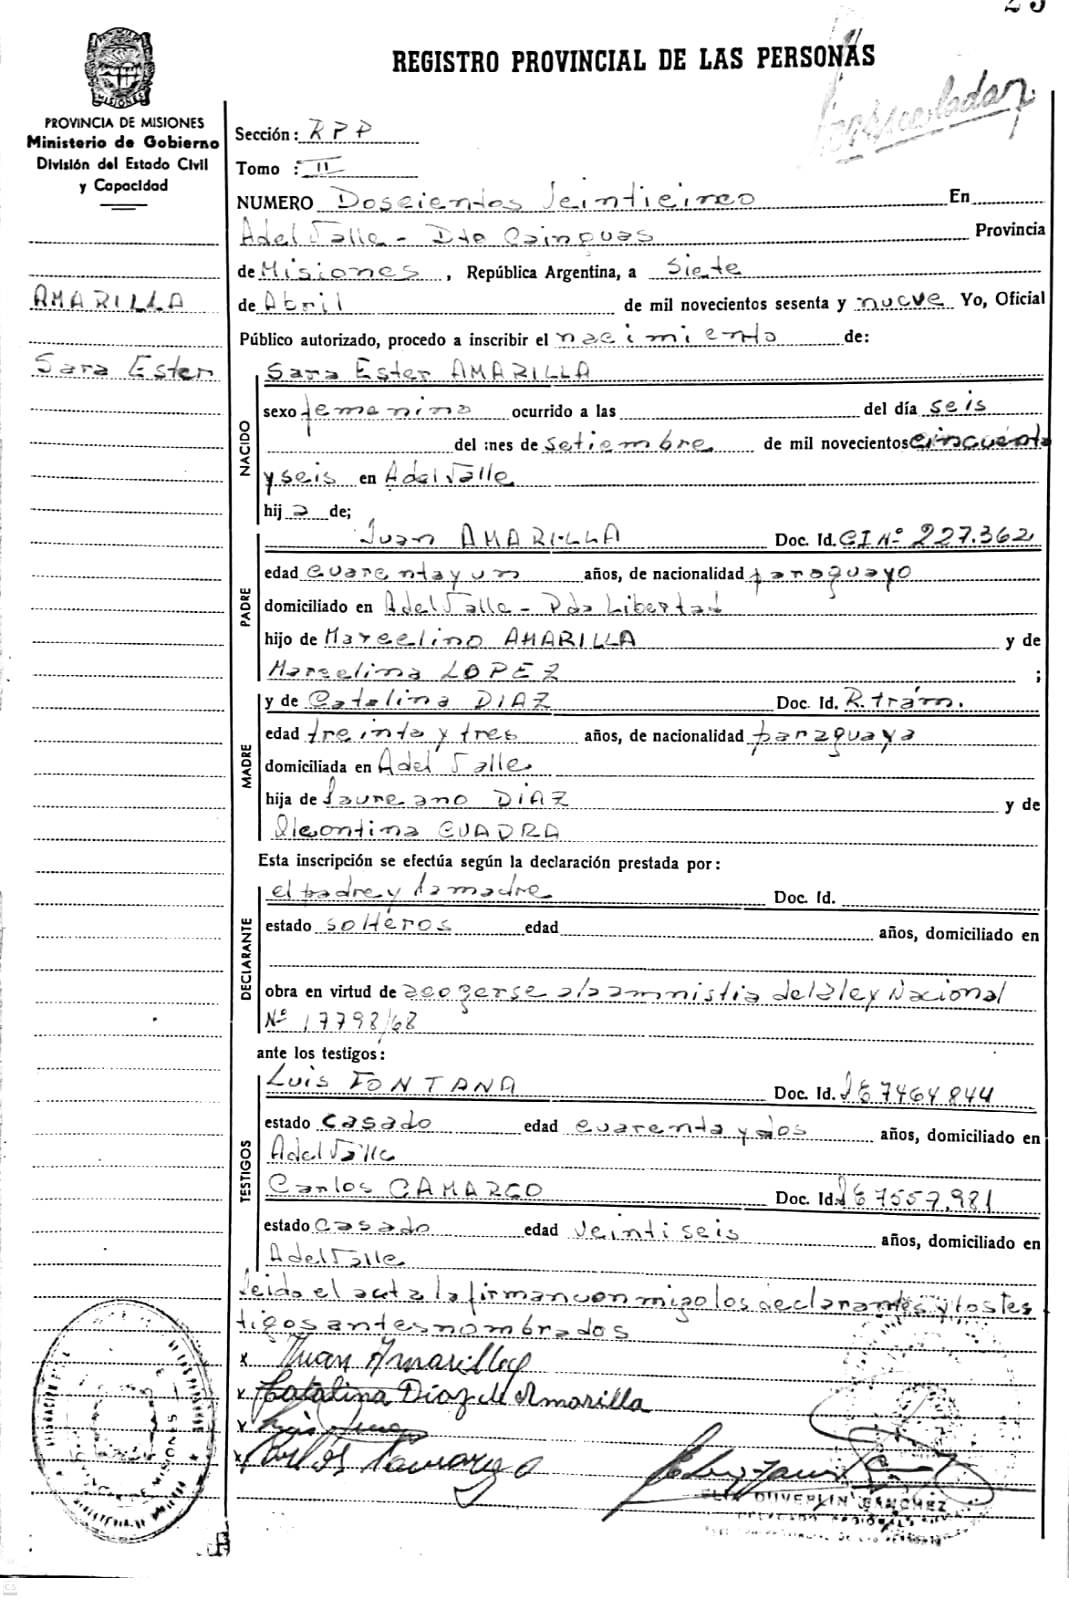 REGISTRO PROVINCIAL DE LAS PERSONAS
PROVINCIA DE MISIONES
Ministerio de Gobierno
División del Estado Civil
y Capacidad
AMARILLA
Sara Ester
Sección: RPP
Tomo : II
NUMERO Doscientos Veinticinco En
Adel Valle - Dto Cainguas Provincia
de Misiones, República Argentina, a Siete
de Abril de mil novecientos sesenta y nueve Yo, Oficial
Público autorizado, procedo a inscribir el nacimiento de:
NACIDO
Sara Ester AMARILLA
sexo femenino ocurrido a las del día seis
del mes de setiembre de mil novecientos cincuenta
y seis en Adel Valle
hij a de;
PADRE
Juan AMARILLA Doc. Id. CI Nº 227.362
edad cuarenta y un años, de nacionalidad paraguayo
domiciliado en Adel Valle - Pda Libertad
hijo de Marcelino AMARILLA y de
Marselina LOPEZ ;
MADRE
y de Catalina DIAZ Doc. Id. R. trám.
edad treinta y tres años, de nacionalidad paraguaya
domiciliada en Adel Valle
hija de Laureano DIAZ y de
CUADRA
Esta inscripción se efectúa según la declaración prestada por:
DECLARANTE
el padre y la madre Doc. Id.
estado solteros edad años, domiciliado en
obra en virtud de acogerse a la amnistia de la ley Nacional
Nº 17798/68
ante los testigos:
TESTIGOS
Luis FONTANA Doc. Id. LE 7464.844
estado casado edad cuarenta y dos años, domiciliado en
Adel Valle
Carlos CAMARGO Doc. Id. LE 7557.981
estado casado edad veintiseis años, domiciliado en
Adel Valle
Leida el acta la firman conmigo los declarantes y los tes
tigos antes nombrados
x Juan Amarilla
x Catalina Díaz de Amarilla
x Luis
x Carlos Camargo
SANCHEZ
CS